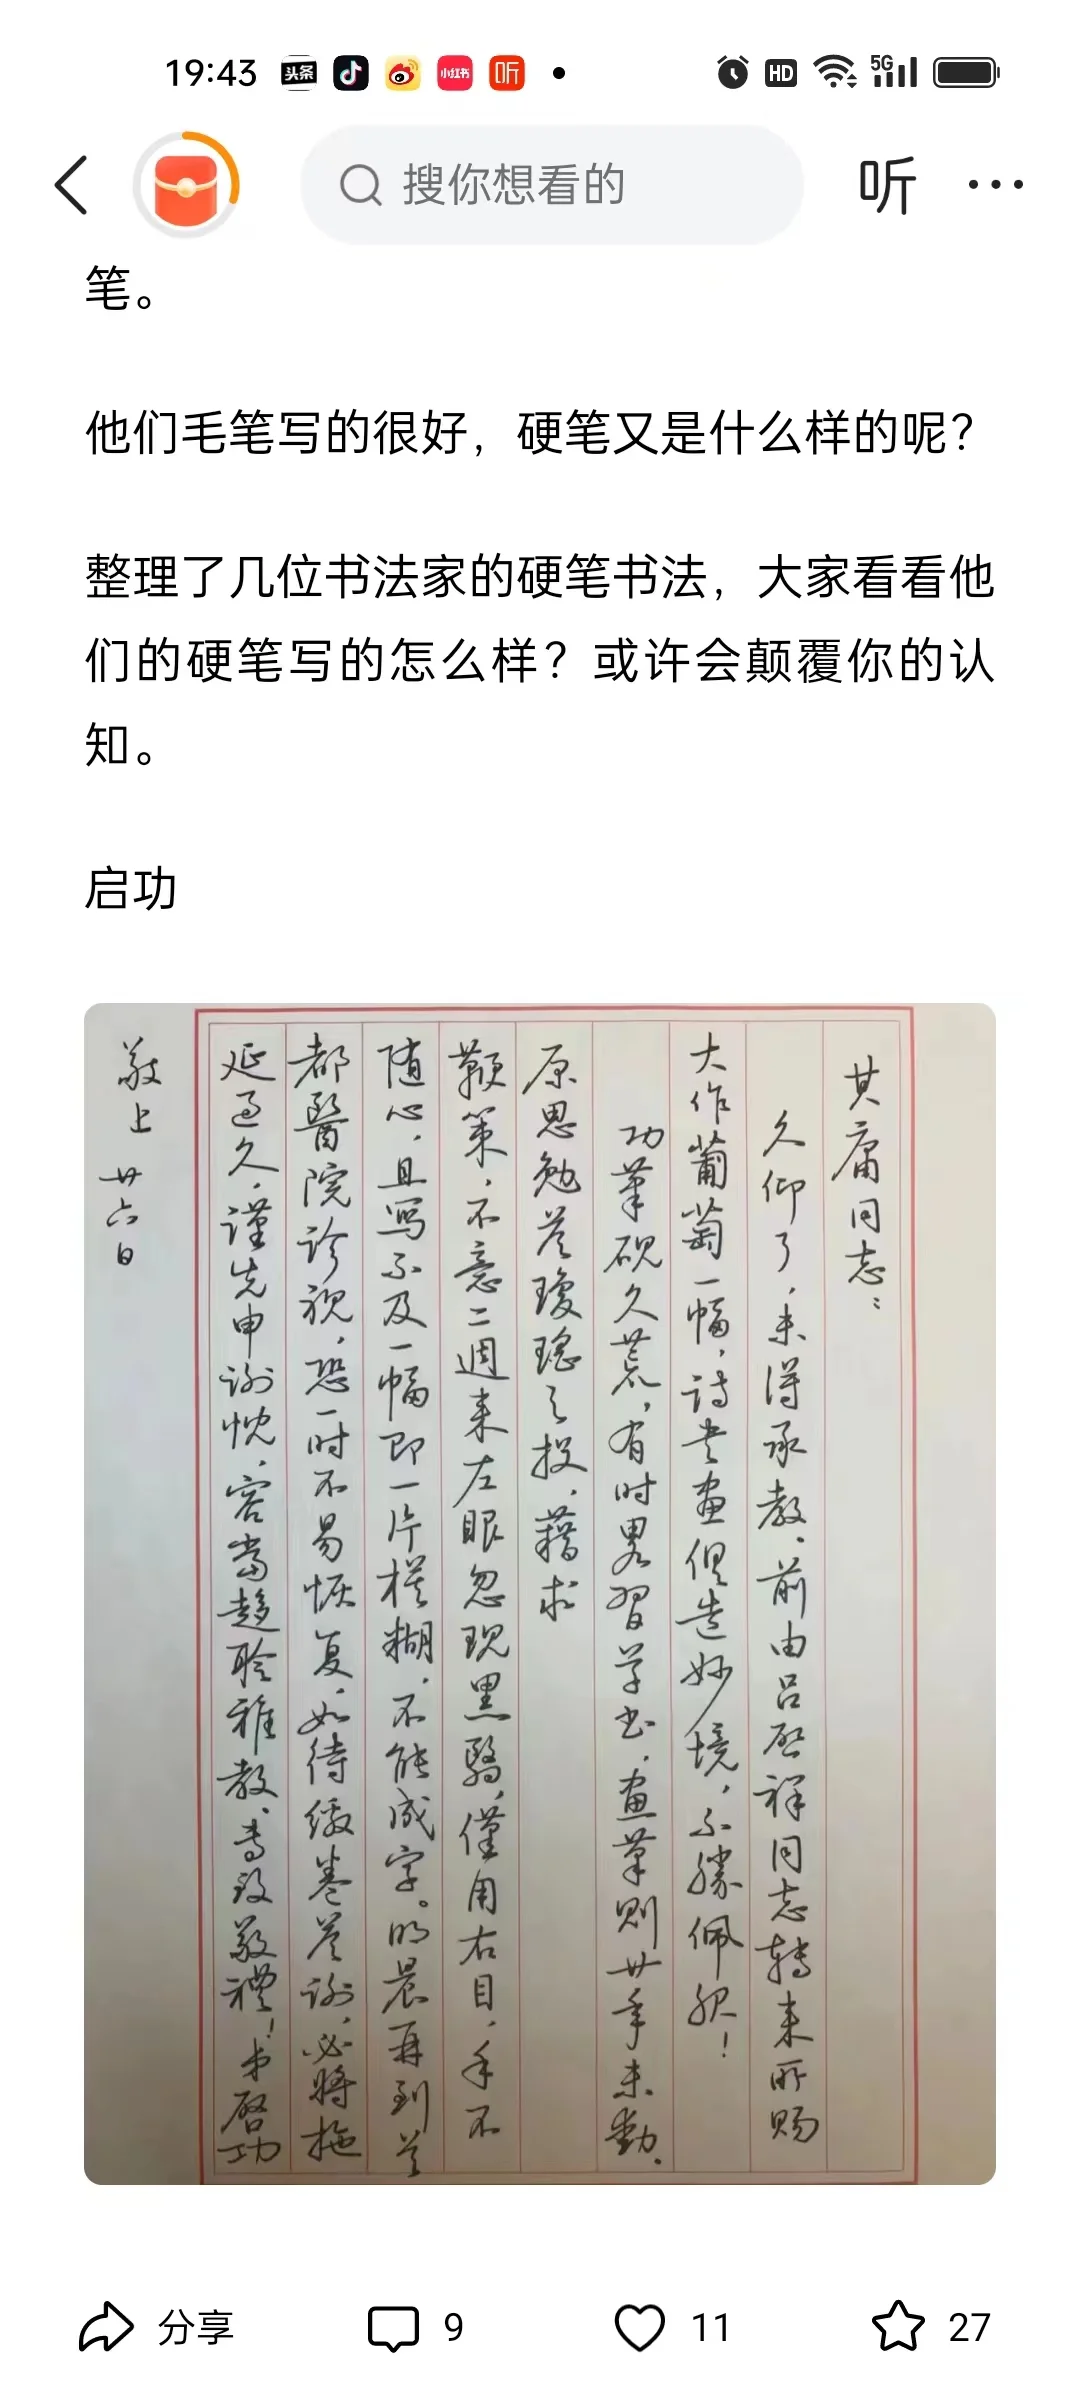 19:43
头条
小红书
听
HD
5G
搜你想看的
听
笔。
他们毛笔写的很好，硬笔又是什么样的呢？
整理了几位书法家的硬笔书法，大家看看他
们的硬笔写的怎么样？或许会颠覆你的认
知。
启功
其庸同志：
久仰了，未得承教。前由吕啓祥同志转来所赐
大作葡萄一幅，诗书画俱造妙境，不勝佩服！
功筆砚久荒，有时畧習学书，画筆則廿年未動。
原思勉答瓊瑤之投，藉求
鞭策，不意二週来左眼忽现黑翳，僅用右目，手不
随心，且写不及一幅即一片模糊，不能成字。明晨再到首
都醫院诊视，恐一时不易恢复，如待缴卷答谢，必將拖
延过久，谨先申谢忱，容當趋聆雅教。专致敬禮！弟啓功
敬上 廿六日
分享
9
11
27